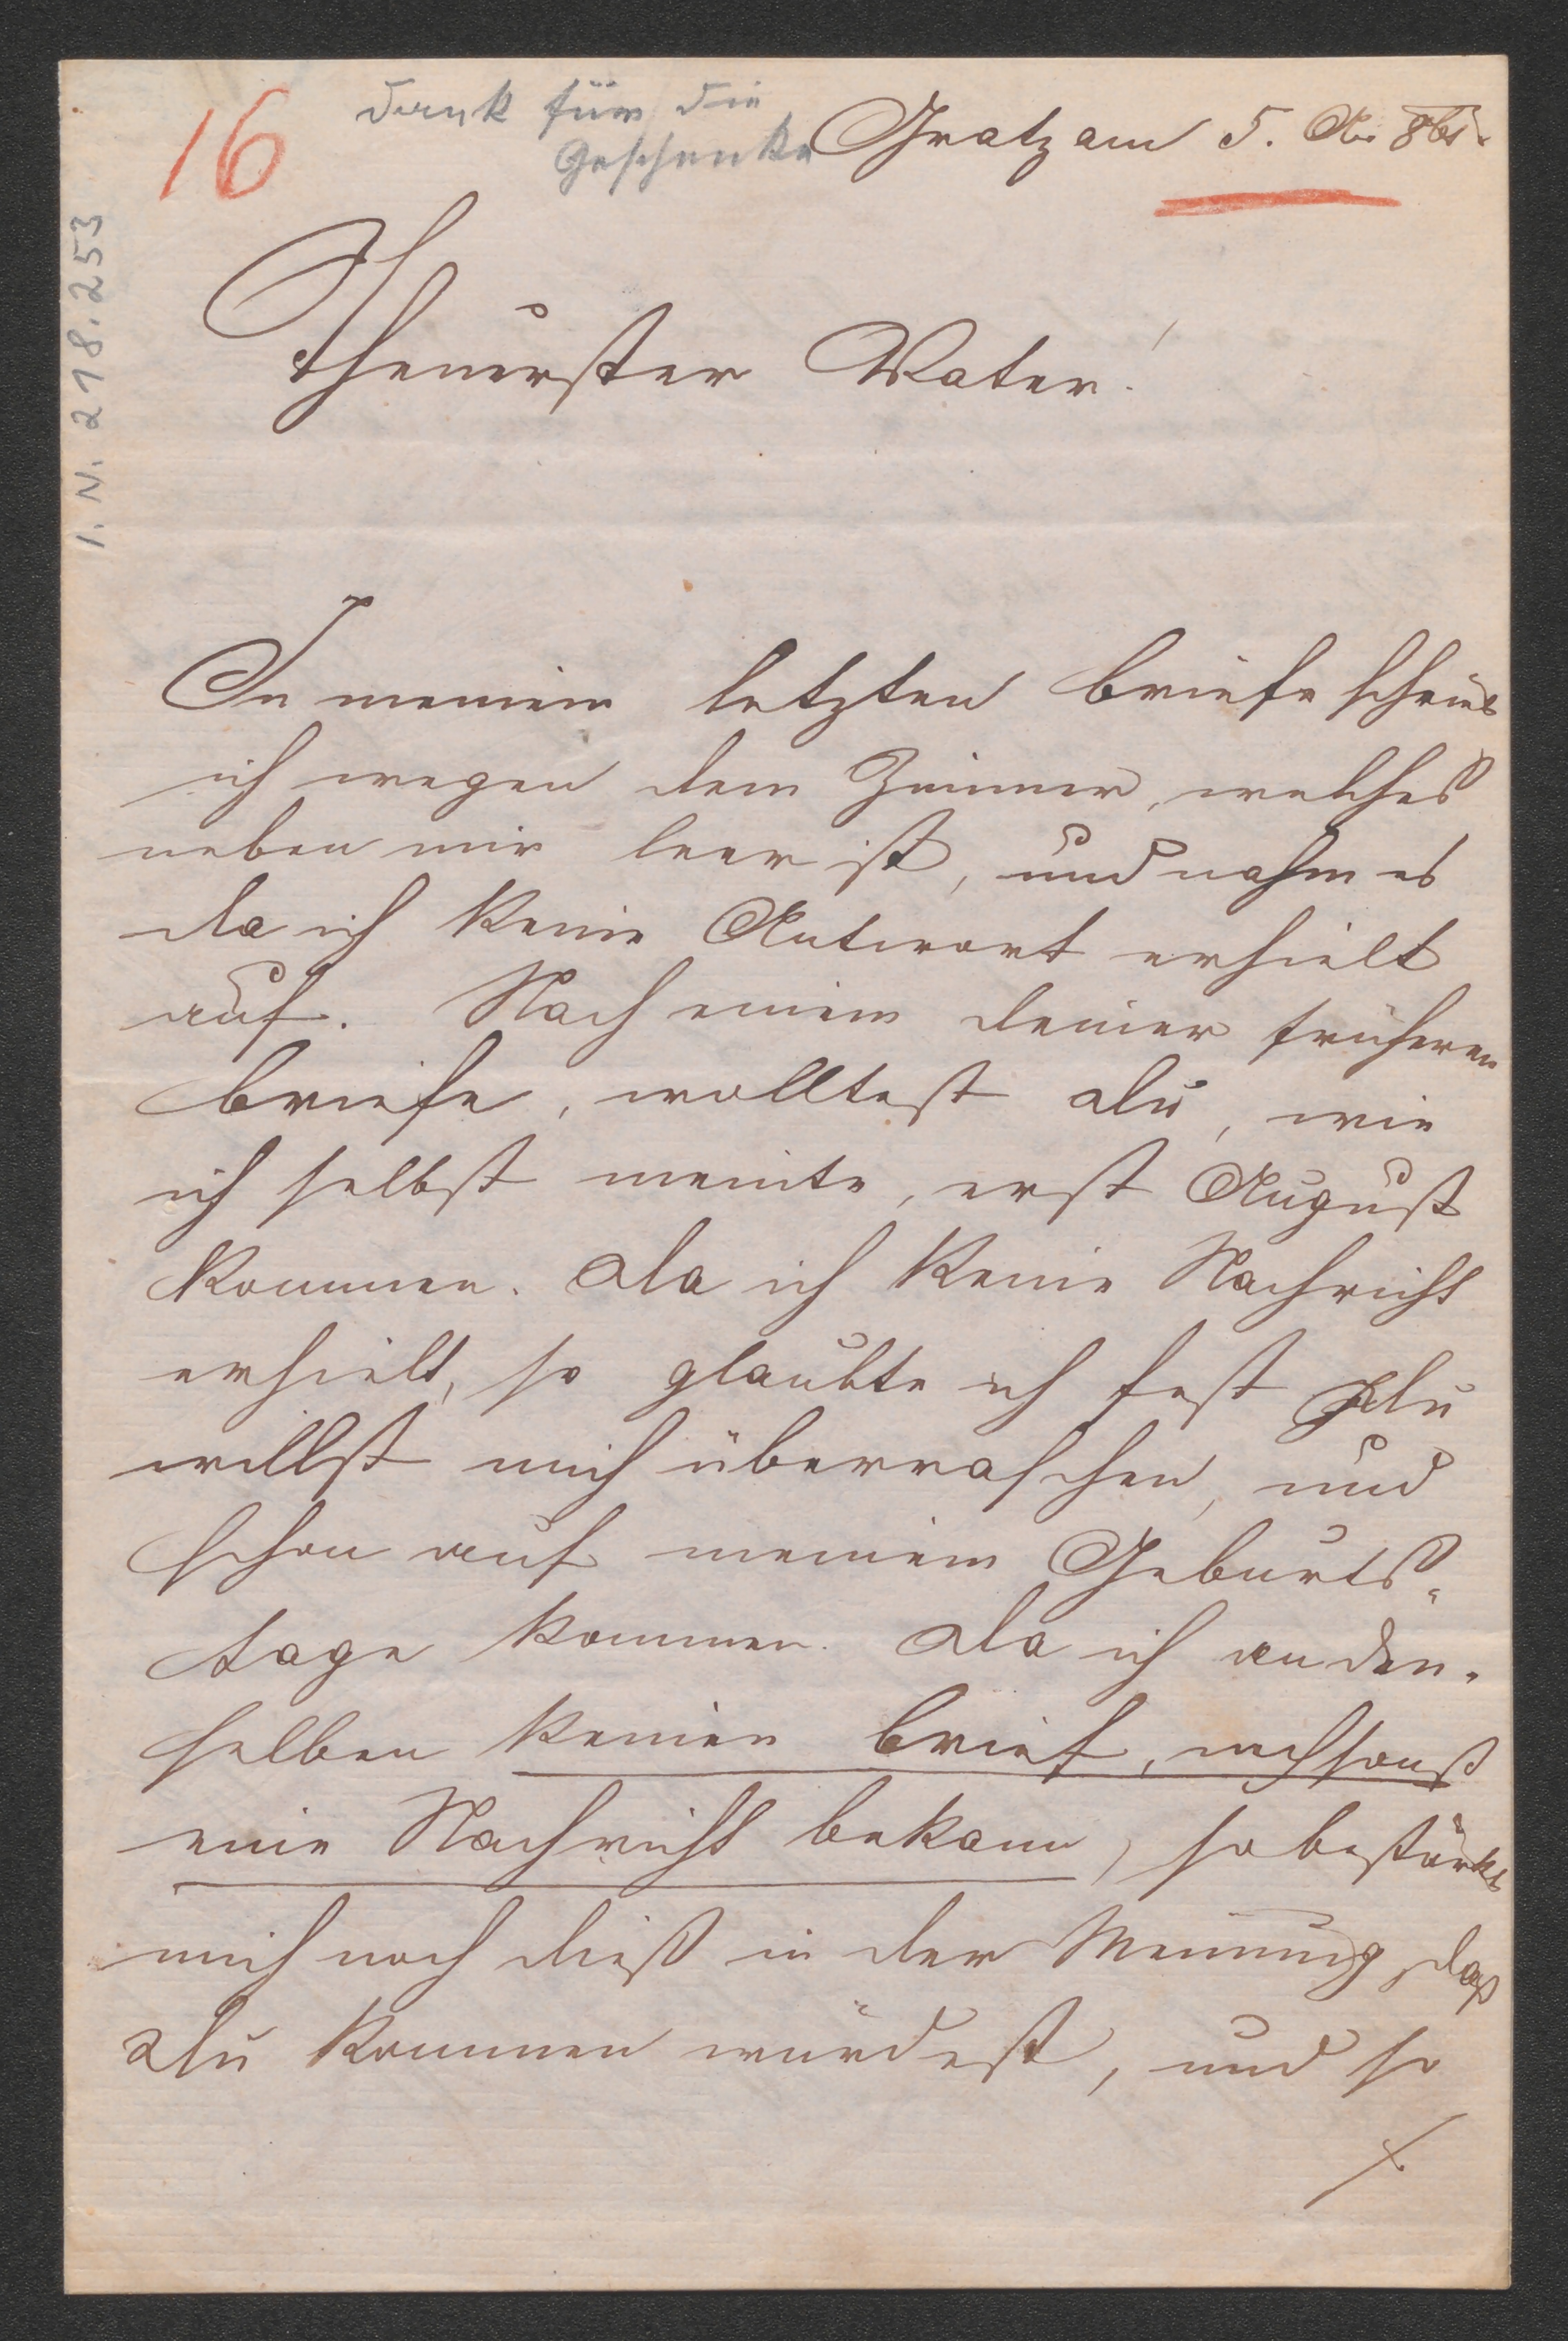 16
Dank für die
Geschenke
Gratz am 5.
I. N. 218.253
Theuerster Vater!
In meinem letzten Briefe schrieb
ich wegen dem Zimmer, welches
neben mir leer ist, und nahm es
da ich keine Antwort erhielt
auf. Nach einem deiner früheren
Briefe, wolltest du, wie
ich selbst meinte, erst August
kommen. Da ich keine Nachricht
erhielt, so glaubte ich fest Du
willst mich überraschen, und
schon auf meinem Geburts-
tage kommen. Da ich an dem-
selben keinen Brief, noch sonst
eine Nachricht bekam, so bestärkte
mich noch dieß in der Meinung, daß
du kommen würdest, und so